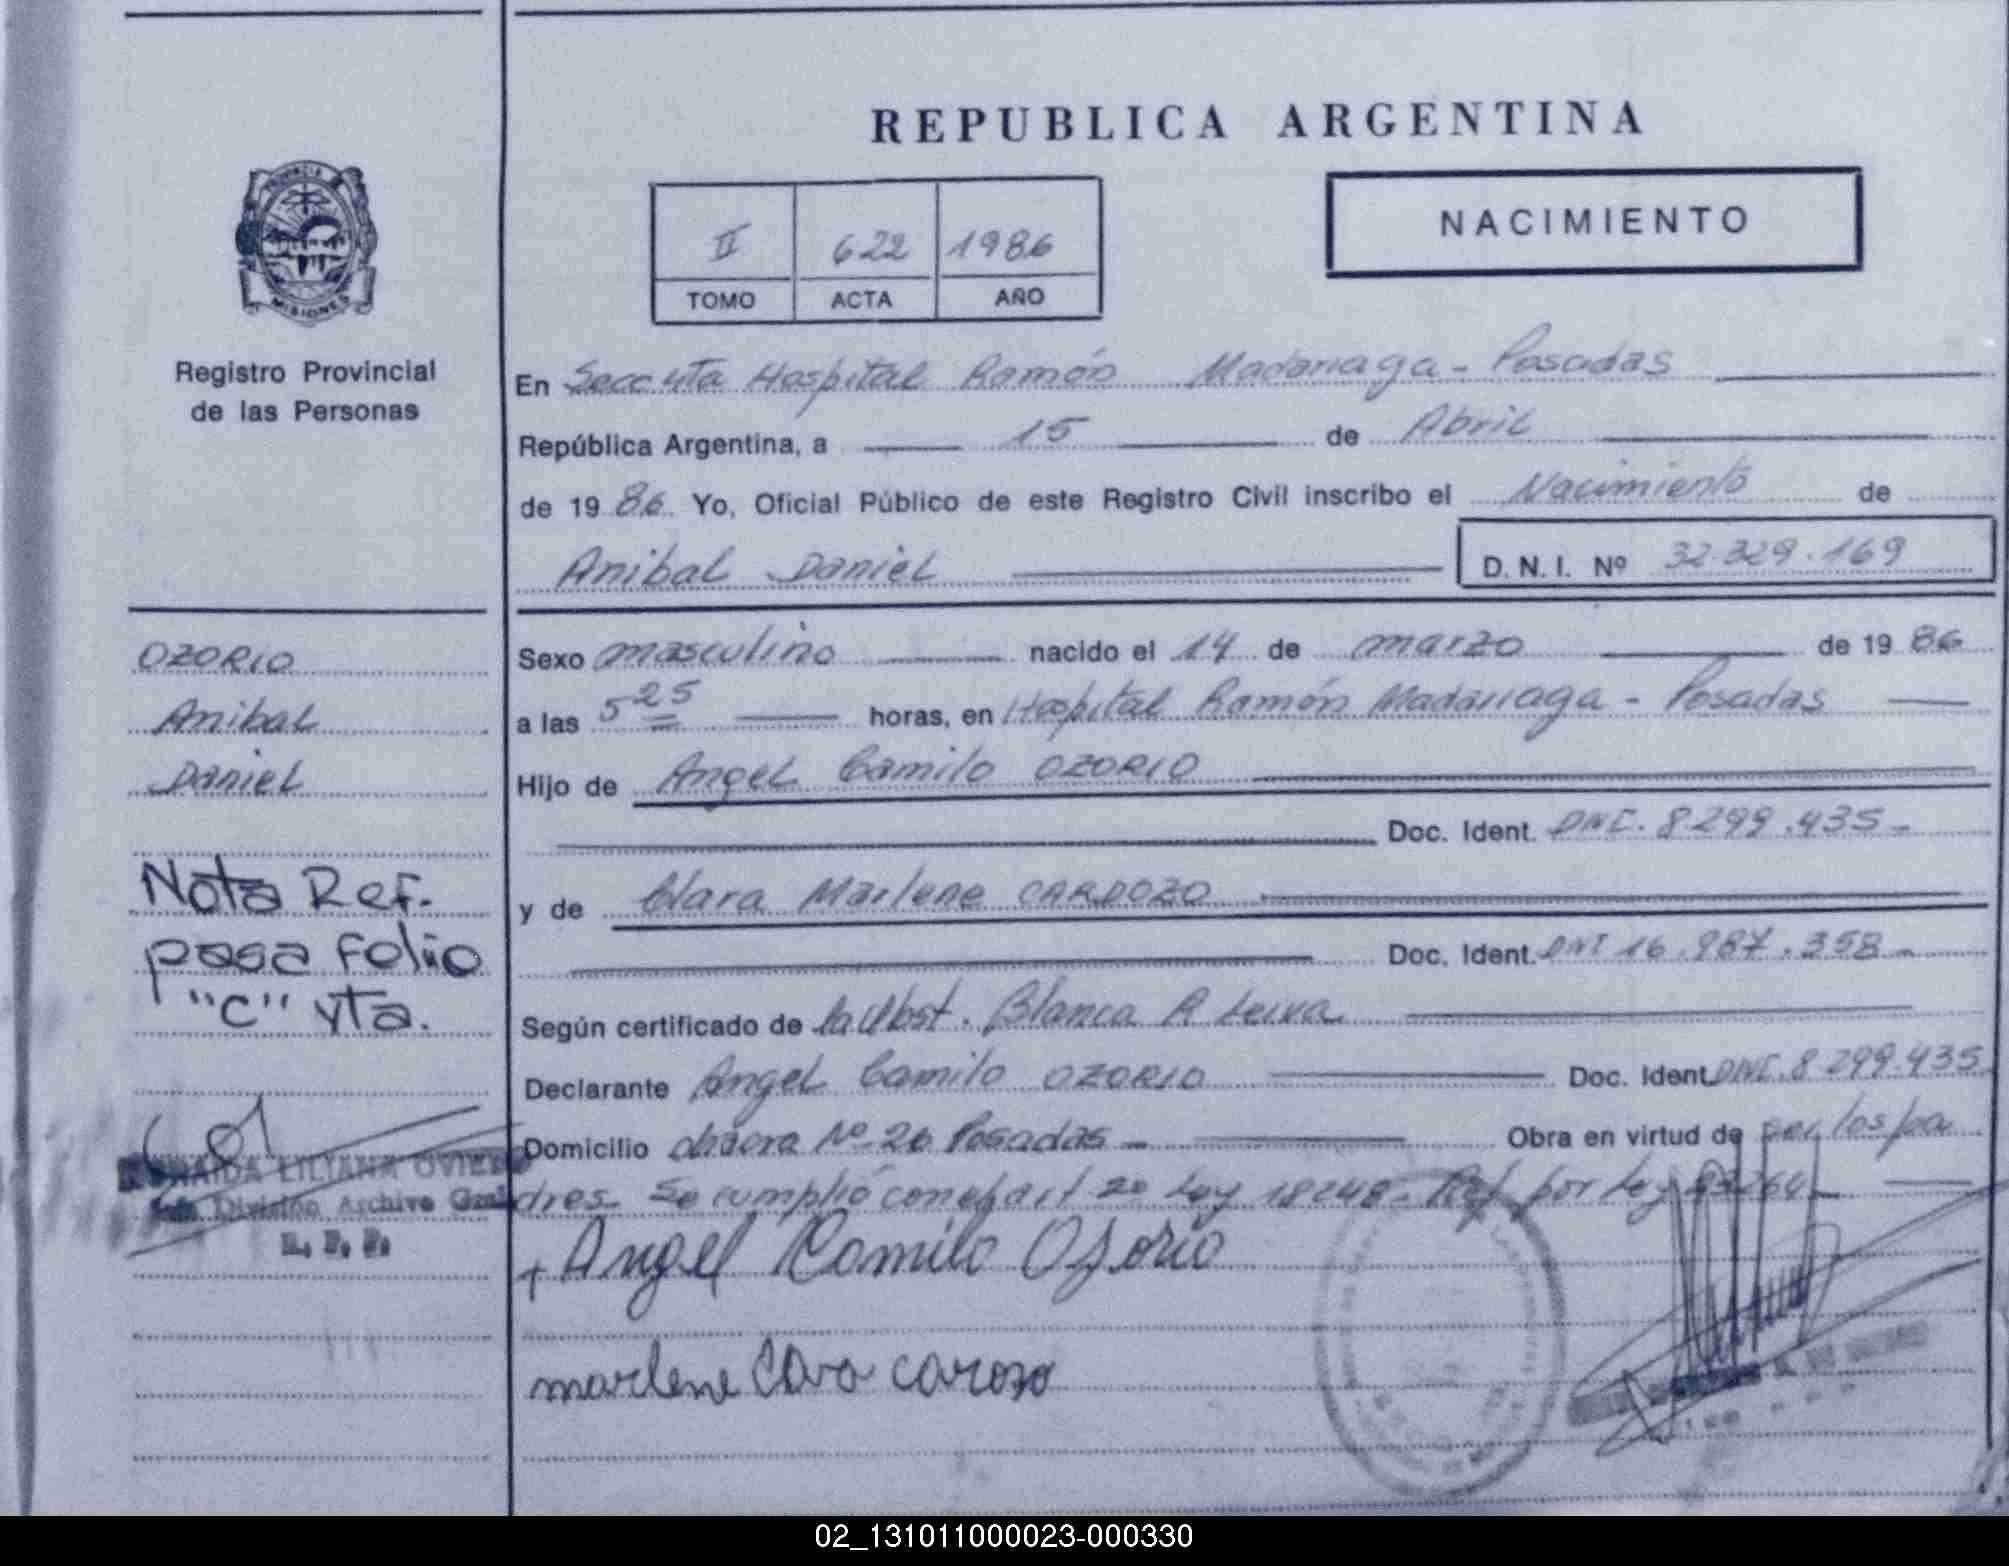 REPUBLICA ARGENTINA
NACIMIENTO
II 622 1986
TOMO ACTA AÑO
PROVINCIA DE
MISIONES
Registro Provincial
de las Personas
En Secc yta Hospital Ramón Madariaga - Posadas
República Argentina, a 15 de Abril
de 19 86. Yo, Oficial Público de este Registro Civil inscribo el Nacimiento de
Anibal Daniel D. N. I. Nº 32.329.169
OZORIO
Anibal
Daniel
Nota Ref.
pasa Folio
"C" yta.
LILIANA
Division Archivo Gral
R. P. P.
Sexo masculino nacido el 14 de marzo de 19 86
a las 5 25 horas, en Hospital Ramón Madariaga - Posadas
Hijo de Angel Camilo OZORIO
Doc. Ident. DNI. 8299.435-
y de Clara Marlene CARDOZO
Doc. Ident. DNI 16.987.358-
Según certificado de la Obst. Blanca R Leiva
Declarante Angel Camilo OZORIO Doc. Ident DNI. 8299.435
Domicilio chacra Nº 26 Posadas - Obra en virtud de por los pa
dres. Se cumplió con el art 2º Ley 18248- Ref por Ley
+ Angel Camilo Ozorio
marlene Clara carozo
02_131011000023-000330